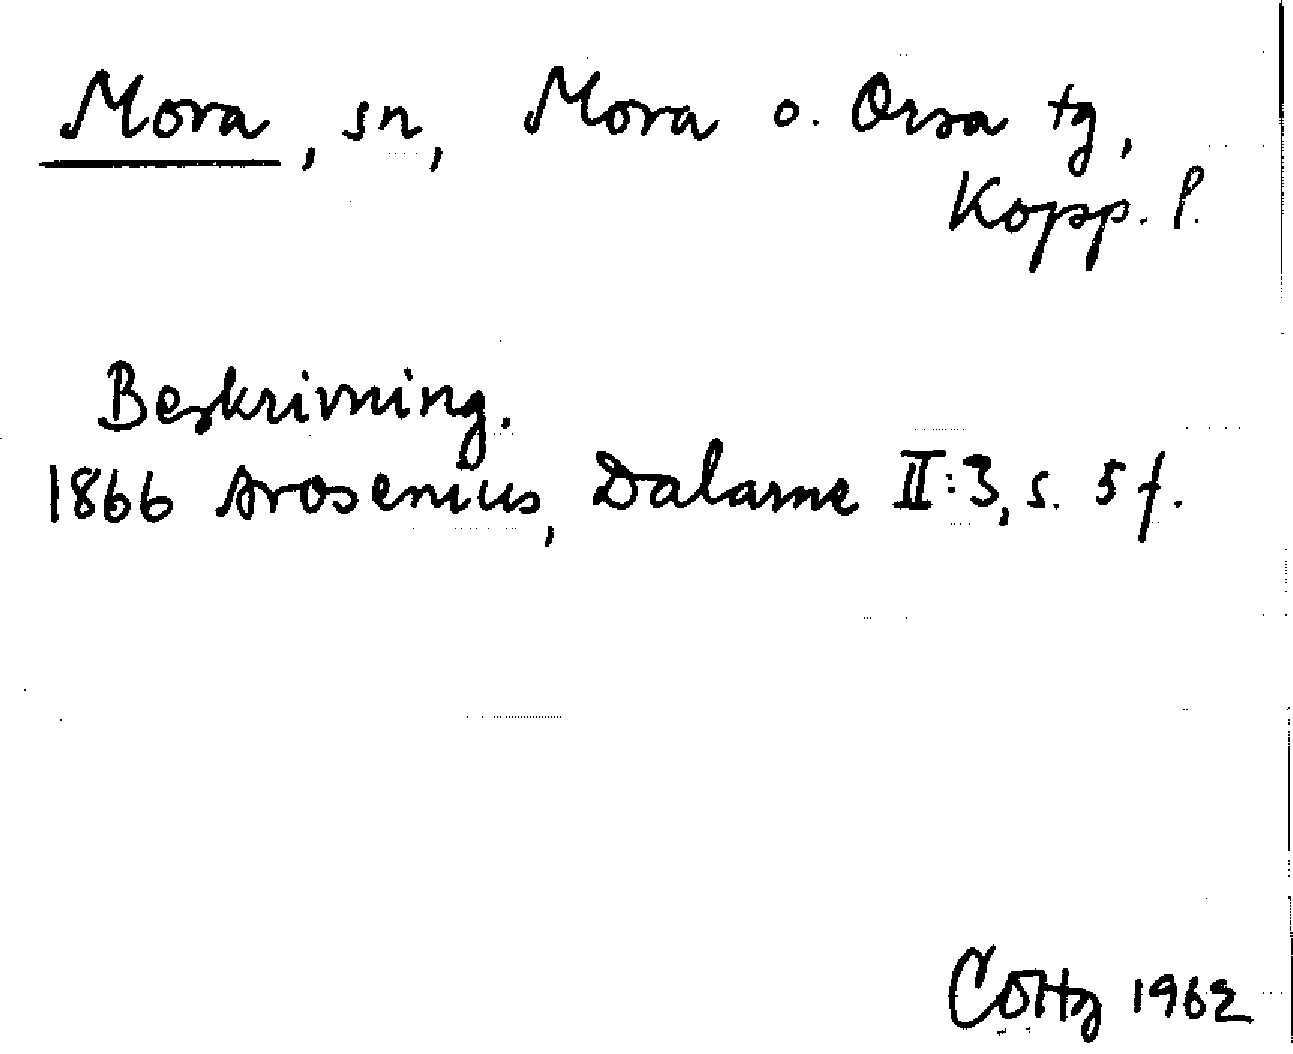 Mora, sn, Mora o. Orsa tg,
Kopp. l.
Beskrivning.
1866 Arosenius, Dalarne II:3, s. 5 f.
1962